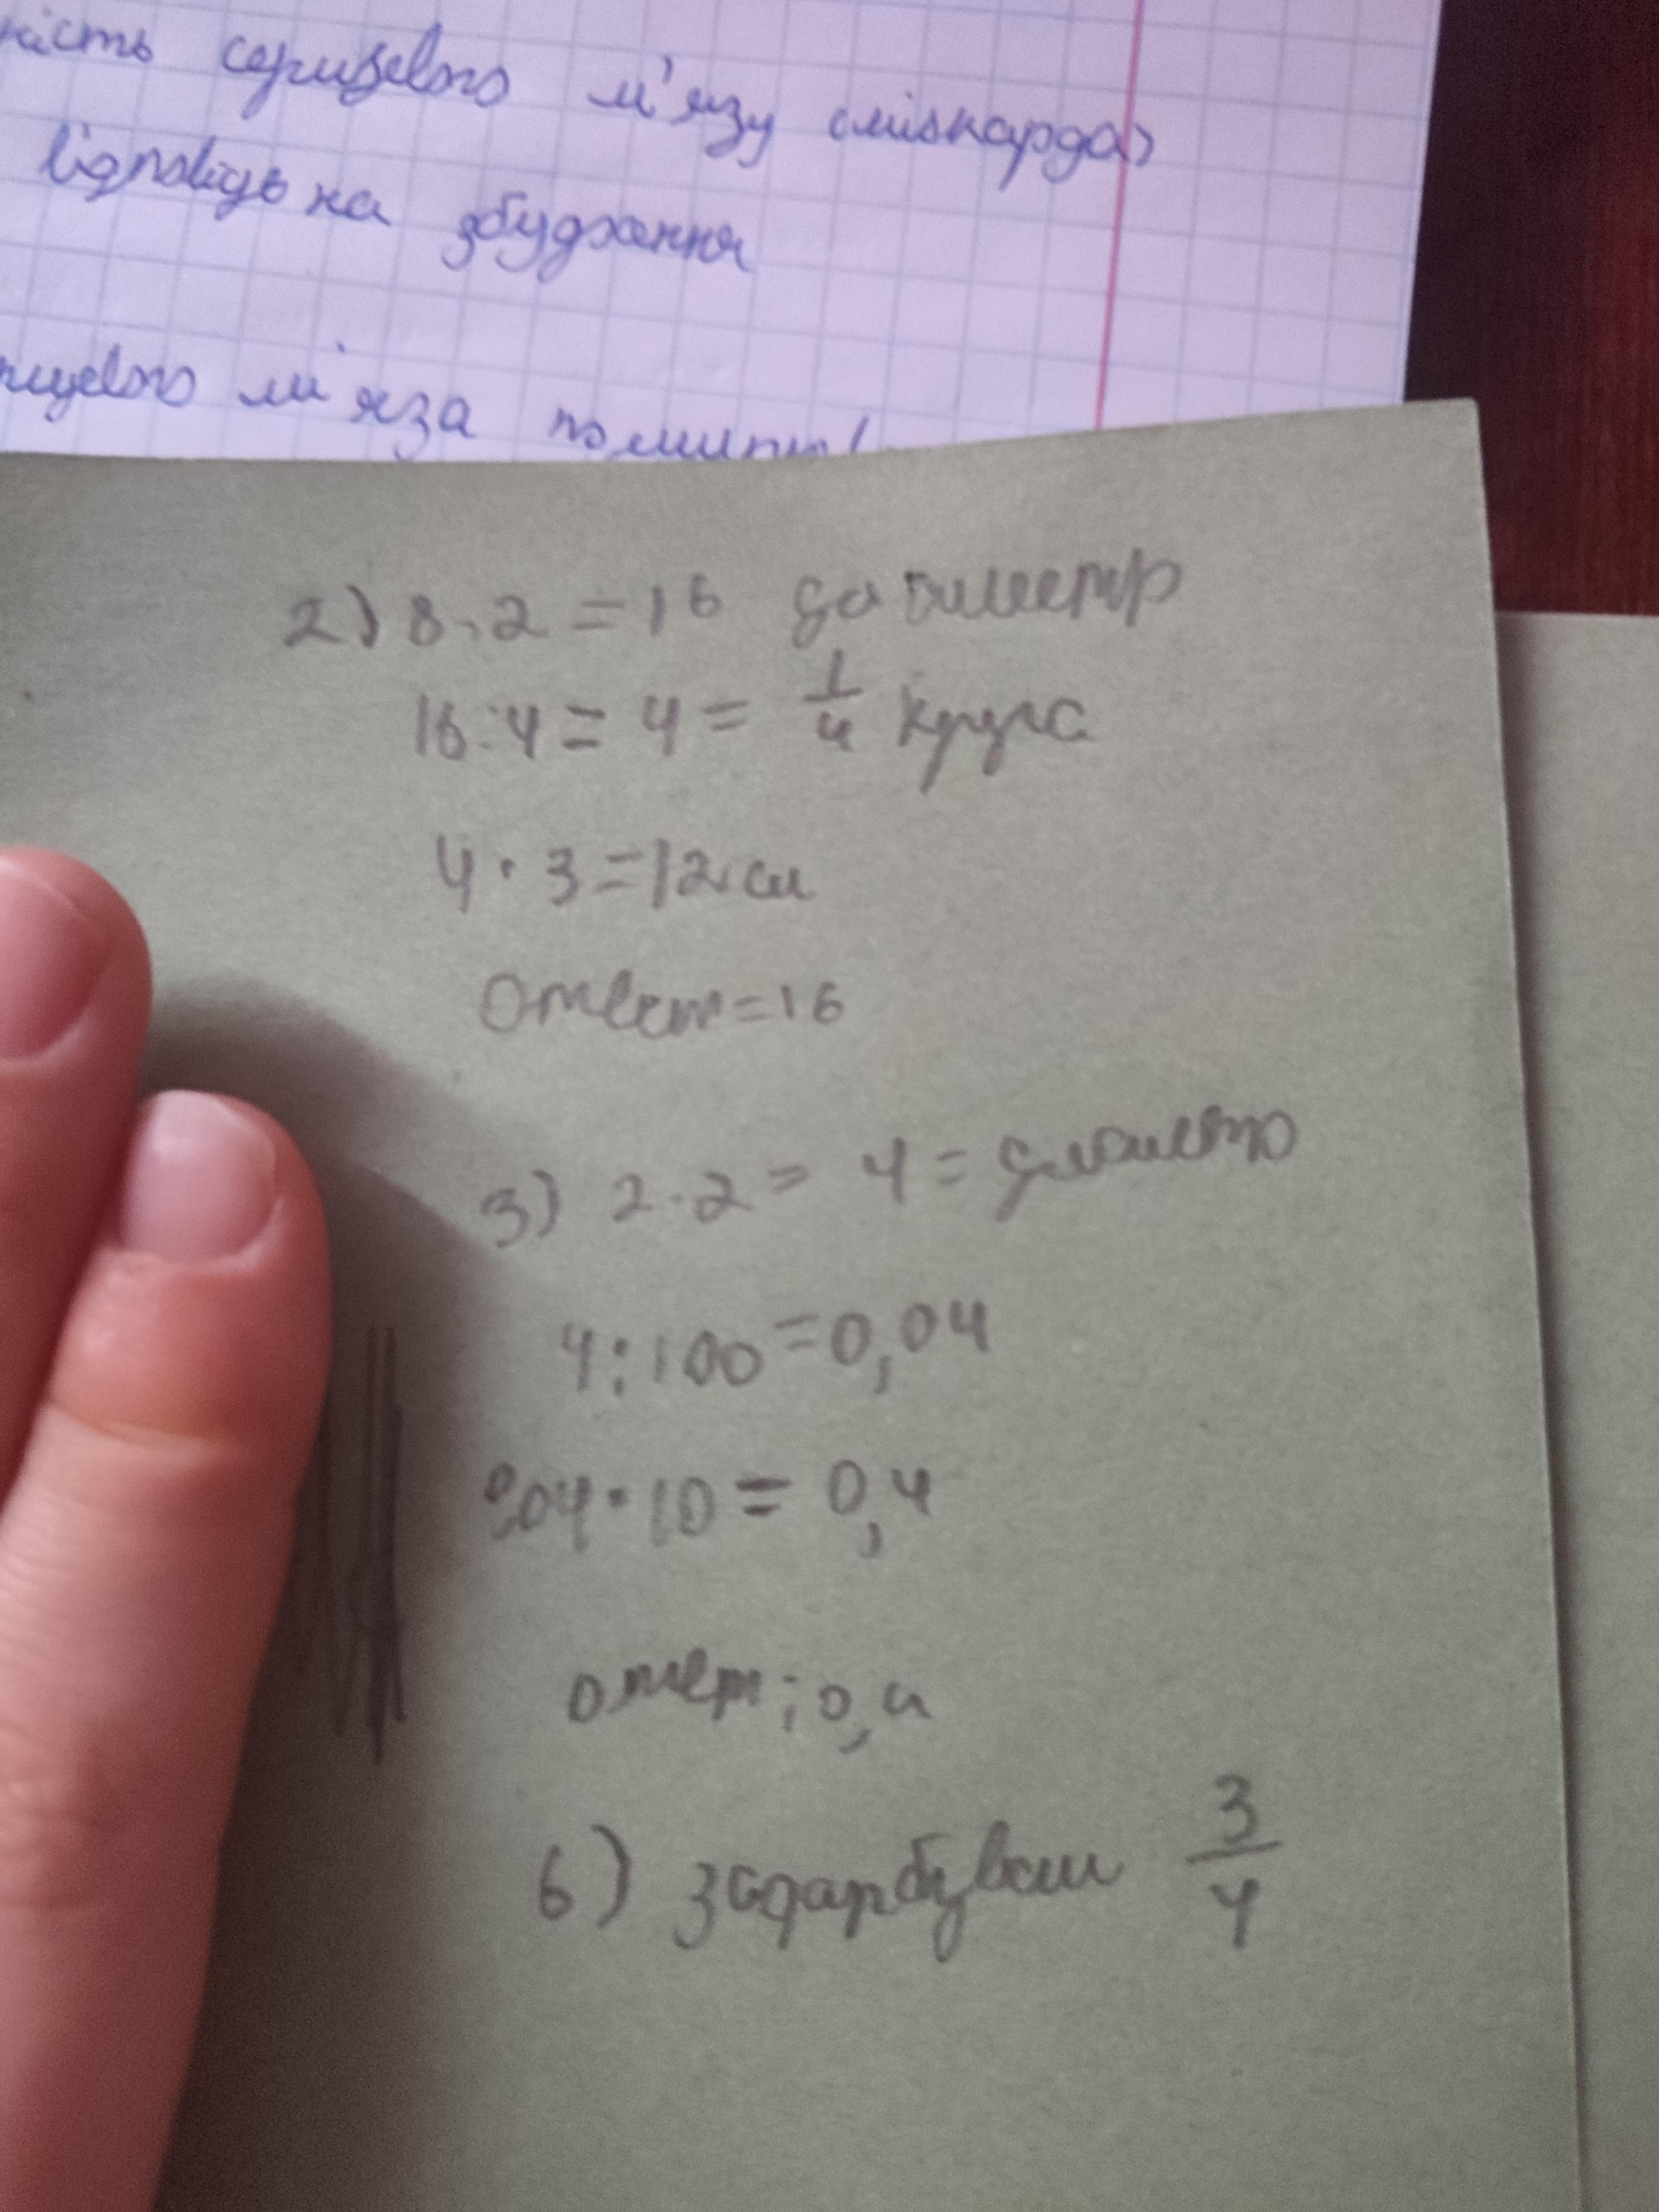 ність серцевого м'язу (міокарда)
відповідь на збудження
рцевого м'яза
2) 8.2=16
16:4=4=1/4 круга
4·3=12см
Ответ=16
3) 2·2=4=
4:100=0,04
0,04·10=0,4
ответ; 0,4
6) 3/4